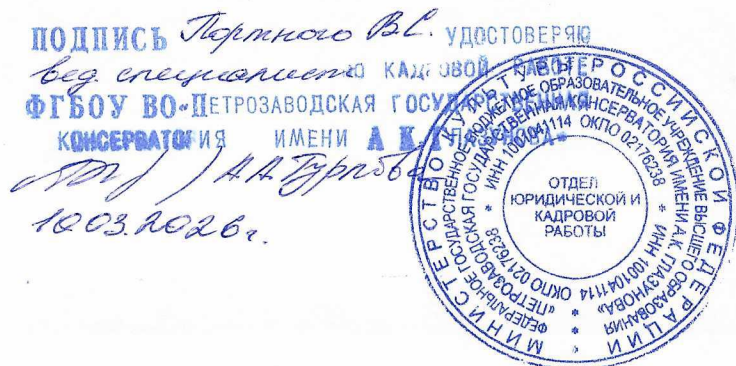 ПОДПИСЬ Портного В.С. УДОСТОВЕРЯЮ
вед. специалист ПО КАДРОВОЙ РАБОТЕ
ФГБОУ ВО «ПЕТРОЗАВОДСКАЯ ГОСУДАРСТВЕННАЯ
КОНСЕРВАТОРИЯ ИМЕНИ А.К. ГЛАЗУНОВА»
10.03.2026г.
МИНИСТЕРСТВО КУЛЬТУРЫ РОССИЙСКОЙ ФЕДЕРАЦИИ
ФЕДЕРАЛЬНОЕ ГОСУДАРСТВЕННОЕ БЮДЖЕТНОЕ ОБРАЗОВАТЕЛЬНОЕ УЧРЕЖДЕНИЕ ВЫСШЕГО ОБРАЗОВАНИЯ
«ПЕТРОЗАВОДСКАЯ ГОСУДАРСТВЕННАЯ КОНСЕРВАТОРИЯ ИМЕНИ А.К. ГЛАЗУНОВА»
ИНН 1001041114 ОКПО 02176238 * ИНН 1001041114 ОКПО 02176238 *
ОТДЕЛ
ЮРИДИЧЕСКОЙ И
КАДРОВОЙ
РАБОТЫ